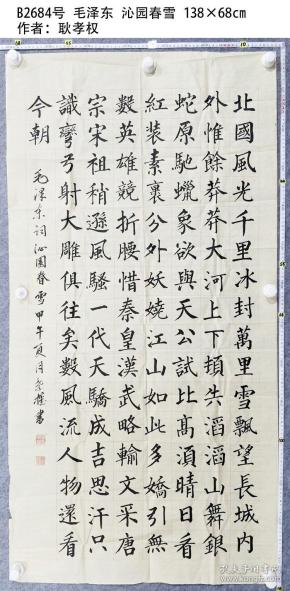 B2684号 毛泽东 沁园春雪 138×68cm
作者：耿孝权
北國風光千里冰封萬里雪飄望長城内
外惟餘莽莽大河上下頓失滔滔山舞銀
蛇原馳蠟象欲與天公試比髙須晴日看
紅装素裹分外妖嬈江山如此多嬌引無
數英雄競折腰惜秦皇漢武略輸文采唐
宗宋祖稍遜風騷一代天驕成吉思汗只
識彎弓射大雕俱往矣數風流人物還看
今朝
毛泽东词沁園春雪甲午夏月孝權書